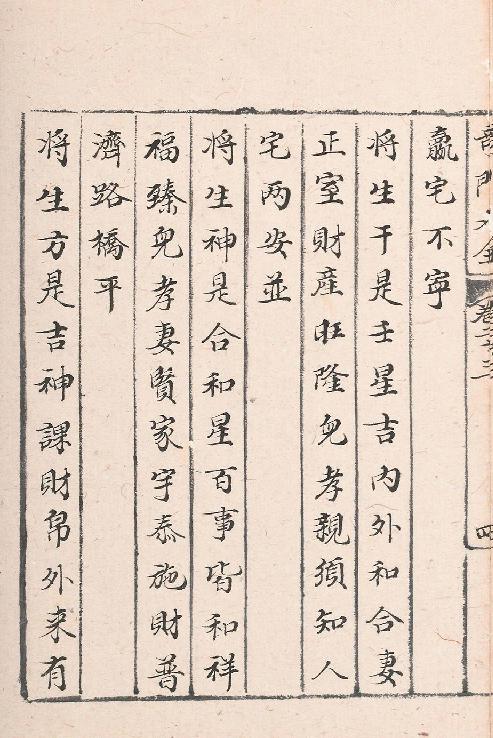 卷
四
贏宅不寧
将生干是壬星吉内外和合妻
正室財產旺隆兒孝親須知人
宅两安並
将生神是合和星百事皆和祥
福臻兒孝妻賢家宇泰施財普
濟路橋平
将生方是吉神課財帛外来有